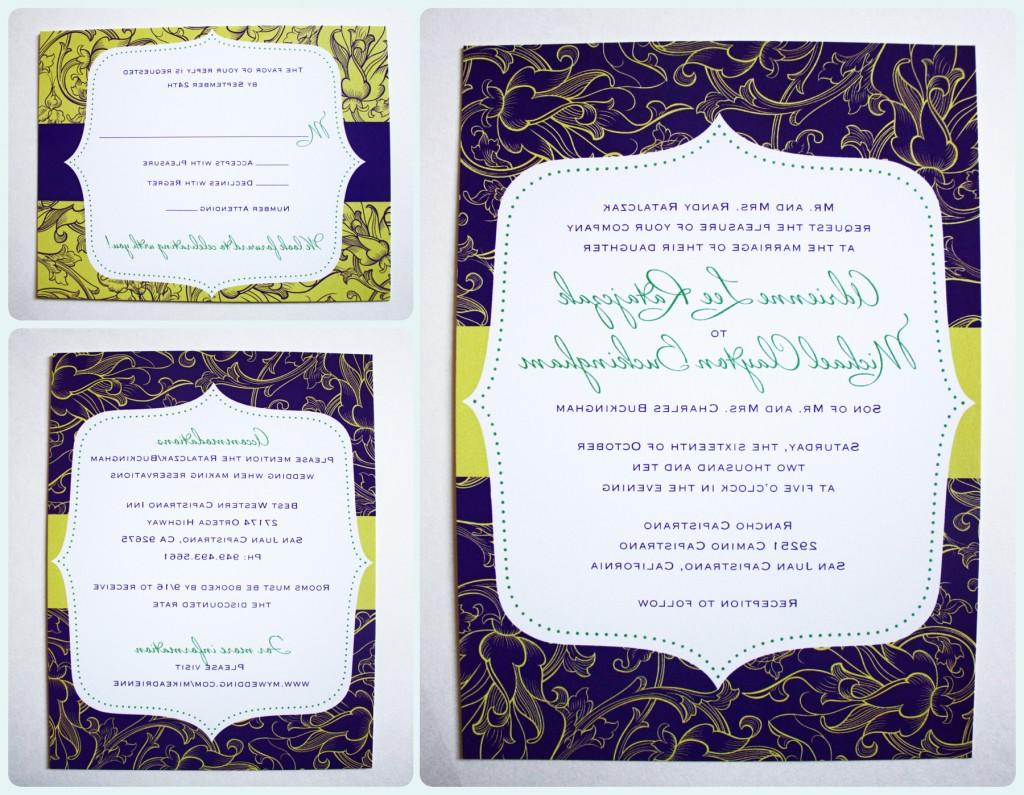 The favor of your reply is requested
by September 24th
M
Accepts with Pleasure
Declines with Regret
Number Attending
We look forward to celebrating with you!
Accommodations
Please mention the Ratajczak/Buckingham
wedding when making reservations
Best Western Capistrano Inn
27174 Ortega Highway
San Juan Capistrano, CA 92675
Ph: 949.493.5661
Rooms must be booked by 9/16 to receive
the discounted rate
For more information
Please visit
www.mywedding.com/mikeadrienne
Mr. and Mrs. Randy Ratajczak
request the pleasure of your company
at the marriage of their daughter
Adrienne Lee Ratajczak
to
Michael Clayton Buckingham
Son of Mr. and Mrs. Charles Buckingham
Saturday, the sixteenth of October
two thousand and ten
at five o'clock in the evening
Rancho Capistrano
29251 Camino Capistrano
San Juan Capistrano, California
Reception to follow